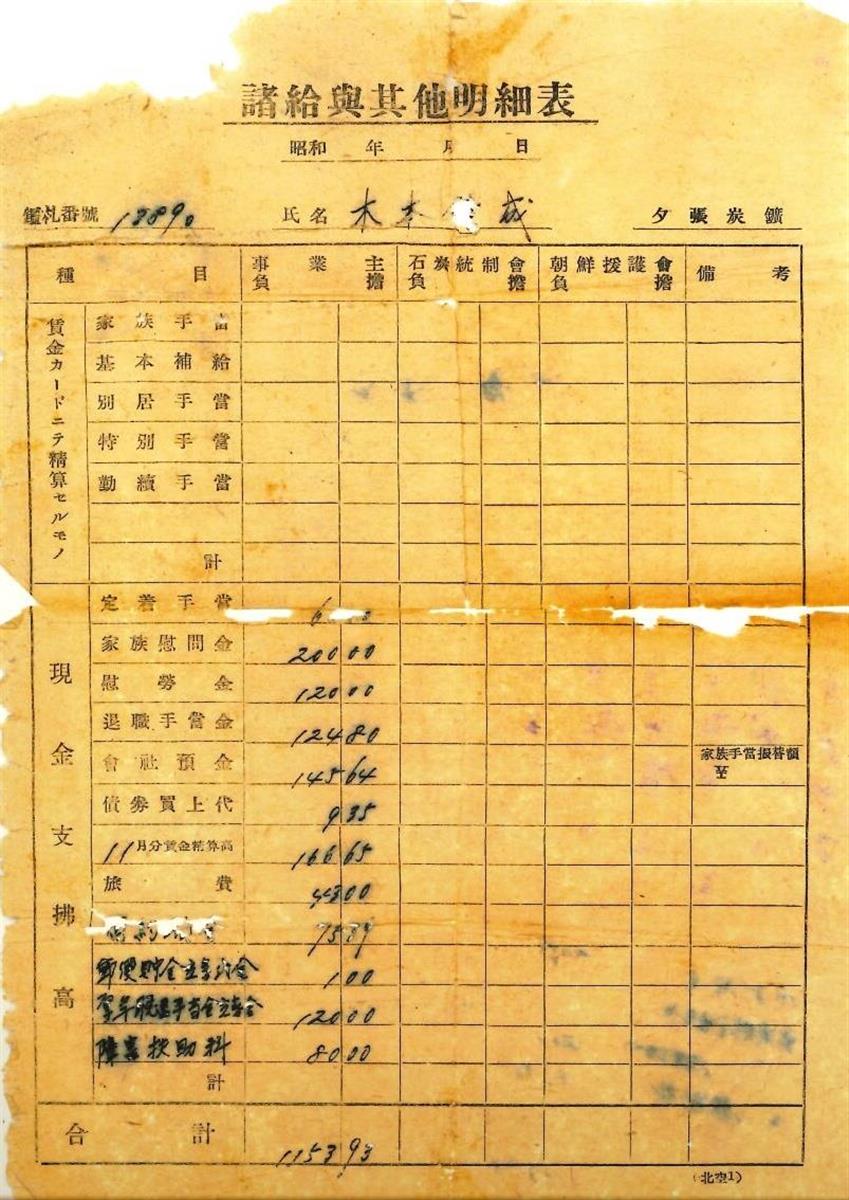 諸給與其他明細表
昭和 年 月 日
鑑札番號 13890 氏名 木本 成 夕張炭鑛
種目 事業主負擔 石炭統制會負擔 朝鮮援護會負擔 備考
賃金カードニテ精算セルモノ
家族手當
基本補給
別居手當
特別手當
勤續手當
計
現金支拂高
定着手當 6
家族慰問金 200 00
慰勞金 120 00
退職手當金 124 80
會社預金 145 64 家族手當振替額
至
債券買上代 9 35
11月分賃金精算高 166 65
旅費 43 00
75 89
郵便貯金立 金 1 00
手当金立 金 120 00
障害扶助料 80 00
計
合計 1153 93
(北空1)